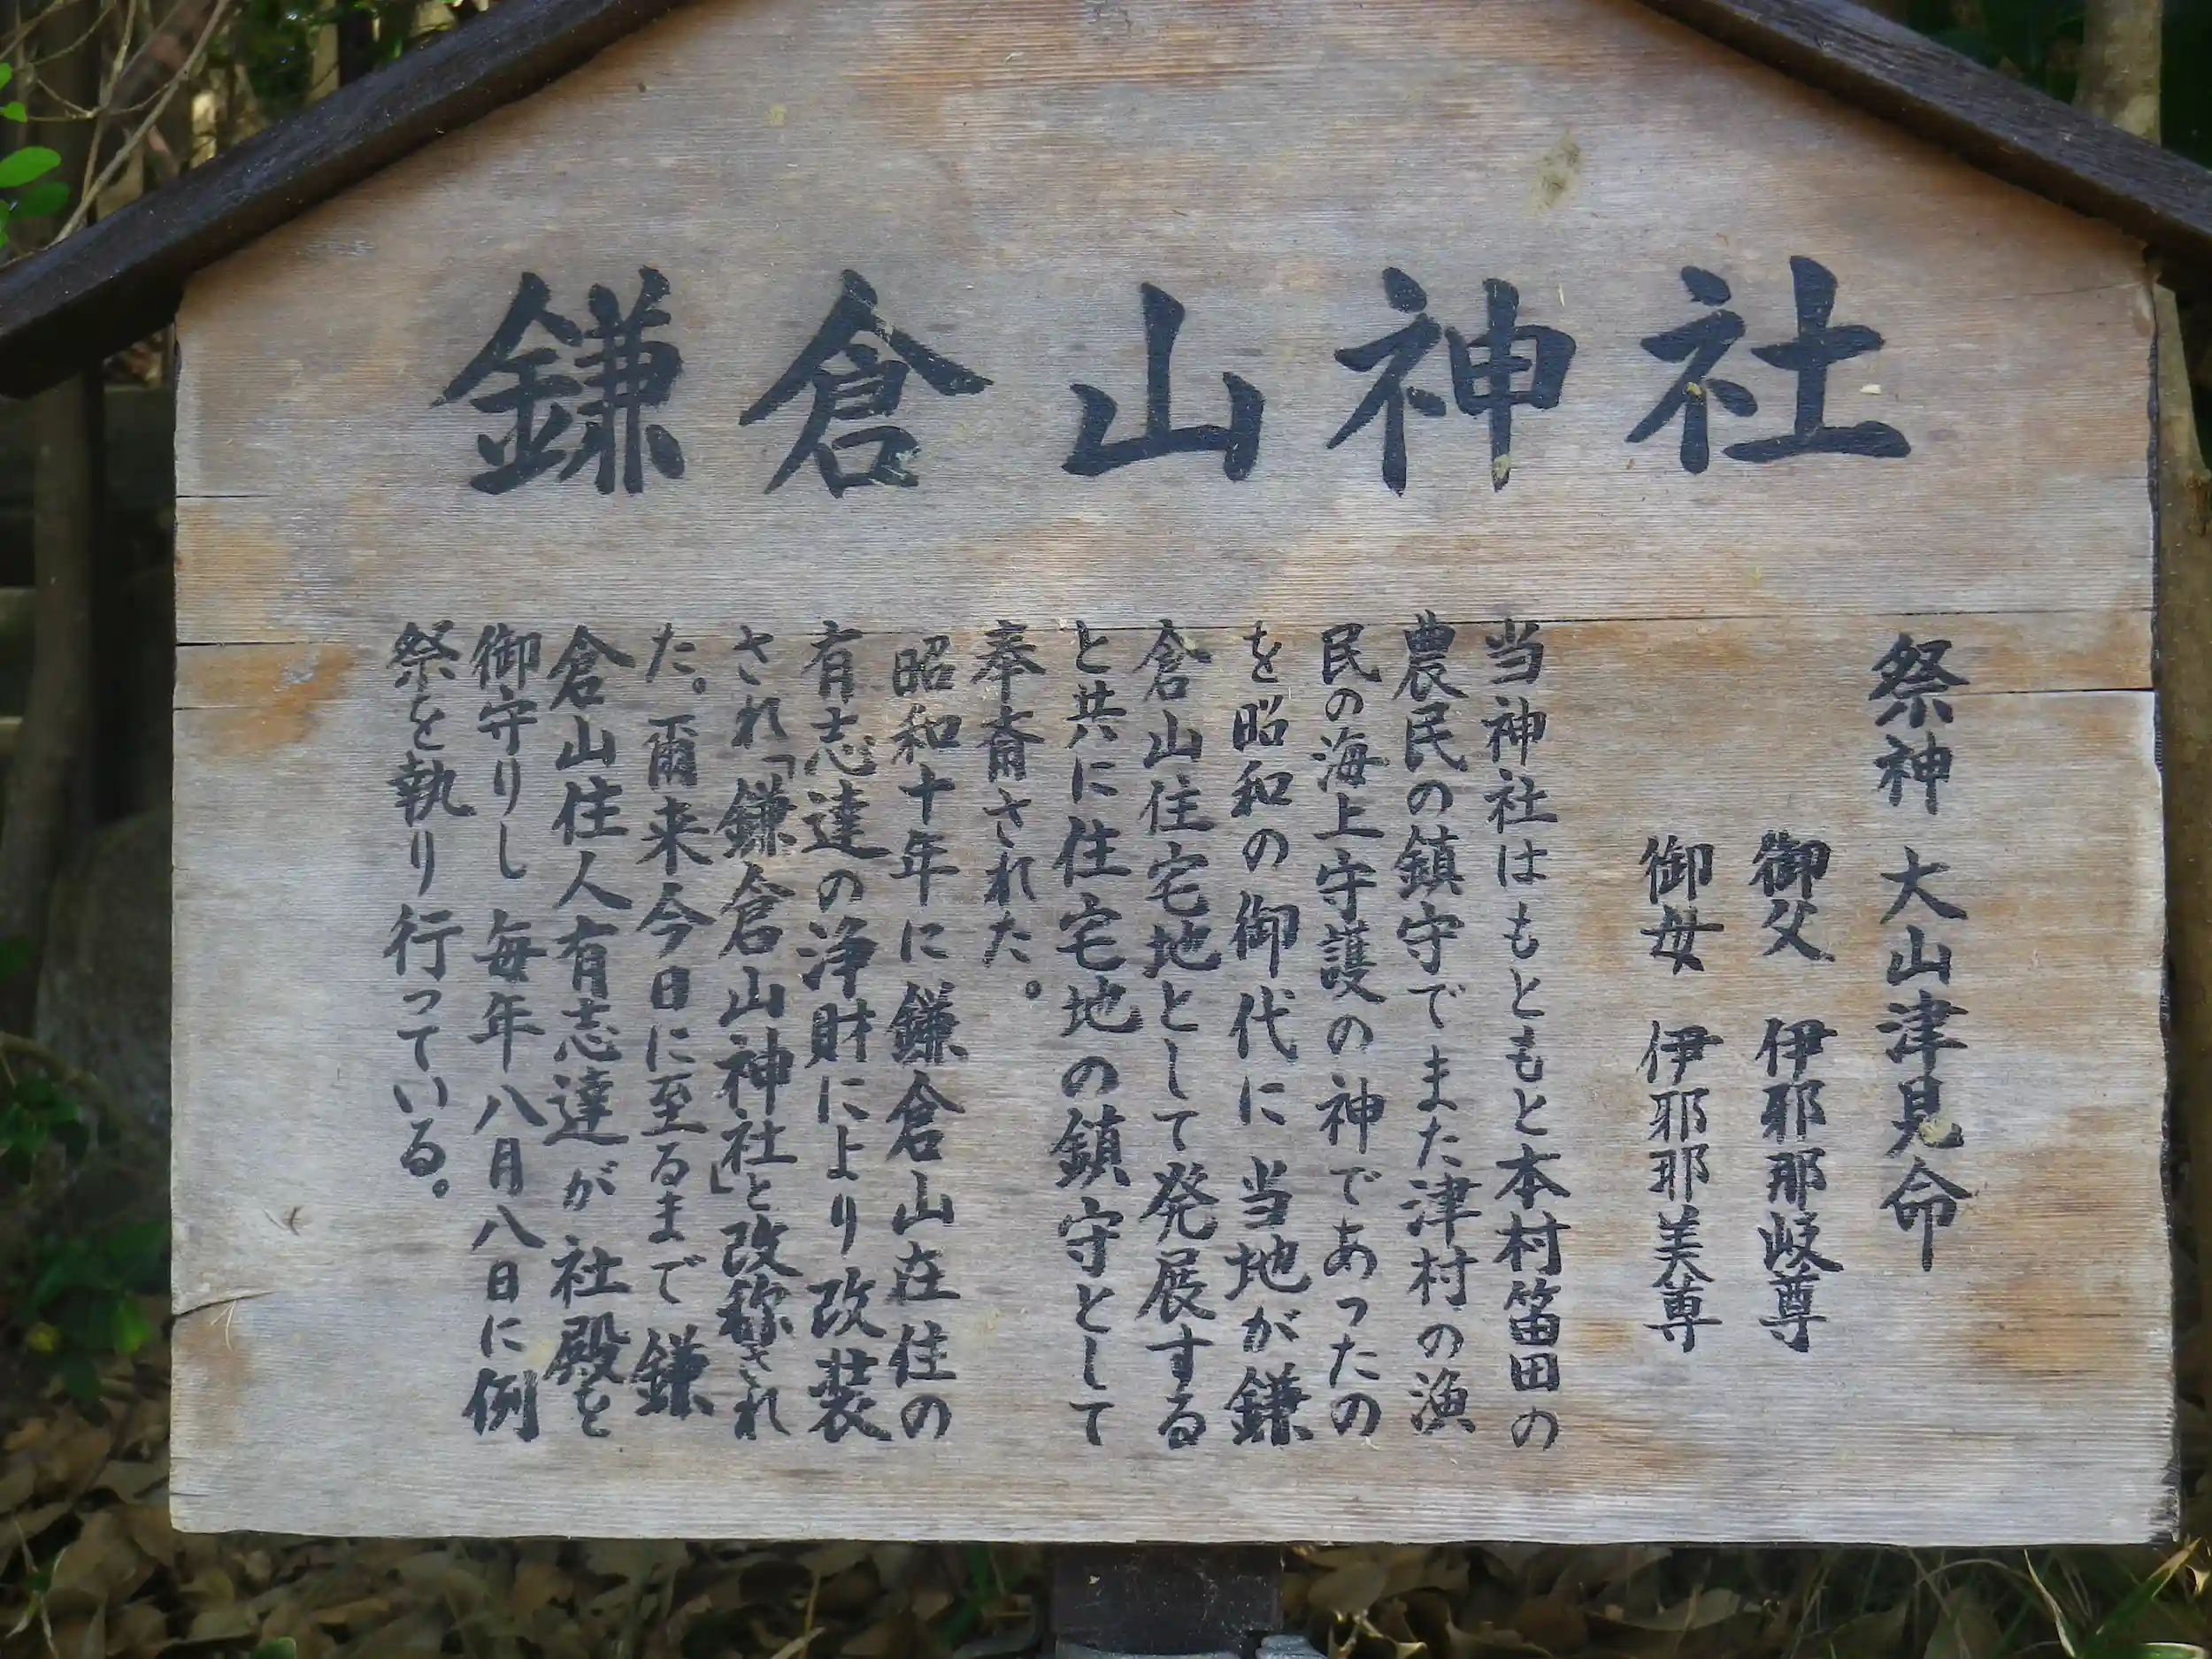 鎌倉山神社
祭神 大山津見命
御父 伊耶那岐尊
御母 伊耶耶美尊
当神社はもともと本村笛田の
農民の鎮守でまた津村の漁
民の海上守護の神であったの
を昭和の御代に当地が鎌
倉山住宅地として発展する
と共に住宅地の鎮守として
奉斎された。
昭和十年に鎌倉山在住の
有志達の浄財により改装
され「鎌倉山神社」と改称され
た。爾来今日に至るまで鎌
倉山住人有志達が社殿を
御守りし毎年八月八日に例
祭を執り行っている。